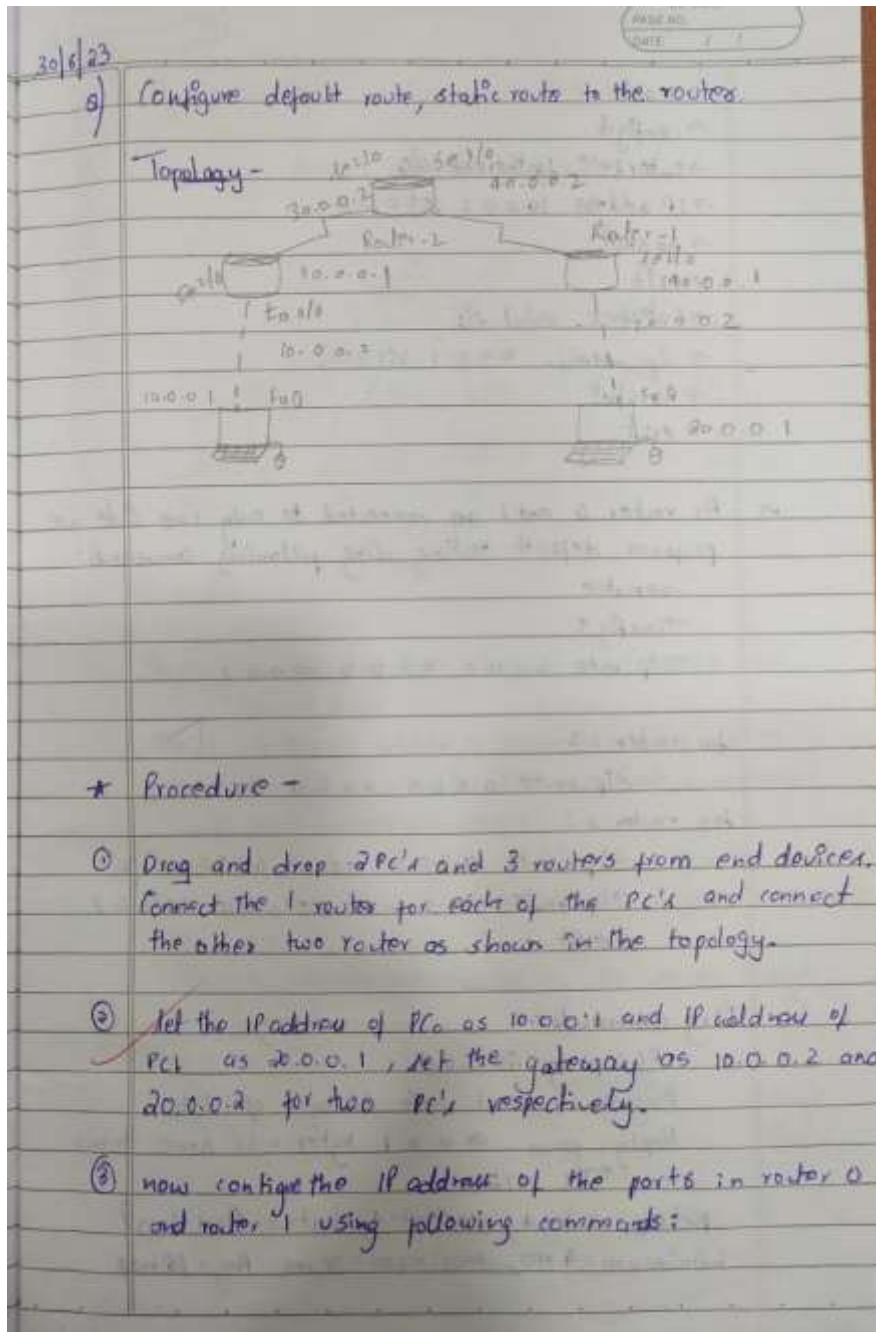 PAGE NO.
DATE / /
30/6/23
Q) Configure default route, static route to the router.
Topology -
Se 3/0
40.0.0.2
30.0.0.2
Router-2
Router-1
Se 2/0
30.0.0.1
40.0.0.1
Fa 0/0
20.0.0.2
10.0.0.2
10.0.0.1
Fa0
Fa0
20.0.0.1
* Procedure -
① Drag and drop 2PC's and 3 routers from end devices.
Connect the 1 router for each of the PC's and connect
the other two router as shown in the topology.
② Set the IP address of PC0 as 10.0.0.1 and IP address of
PC1 as 20.0.0.1, set the gateway as 10.0.0.2 and
20.0.0.2 for two PC's respectively.
③ now configre the IP address of the ports in router 0
and router 1 using following commands: